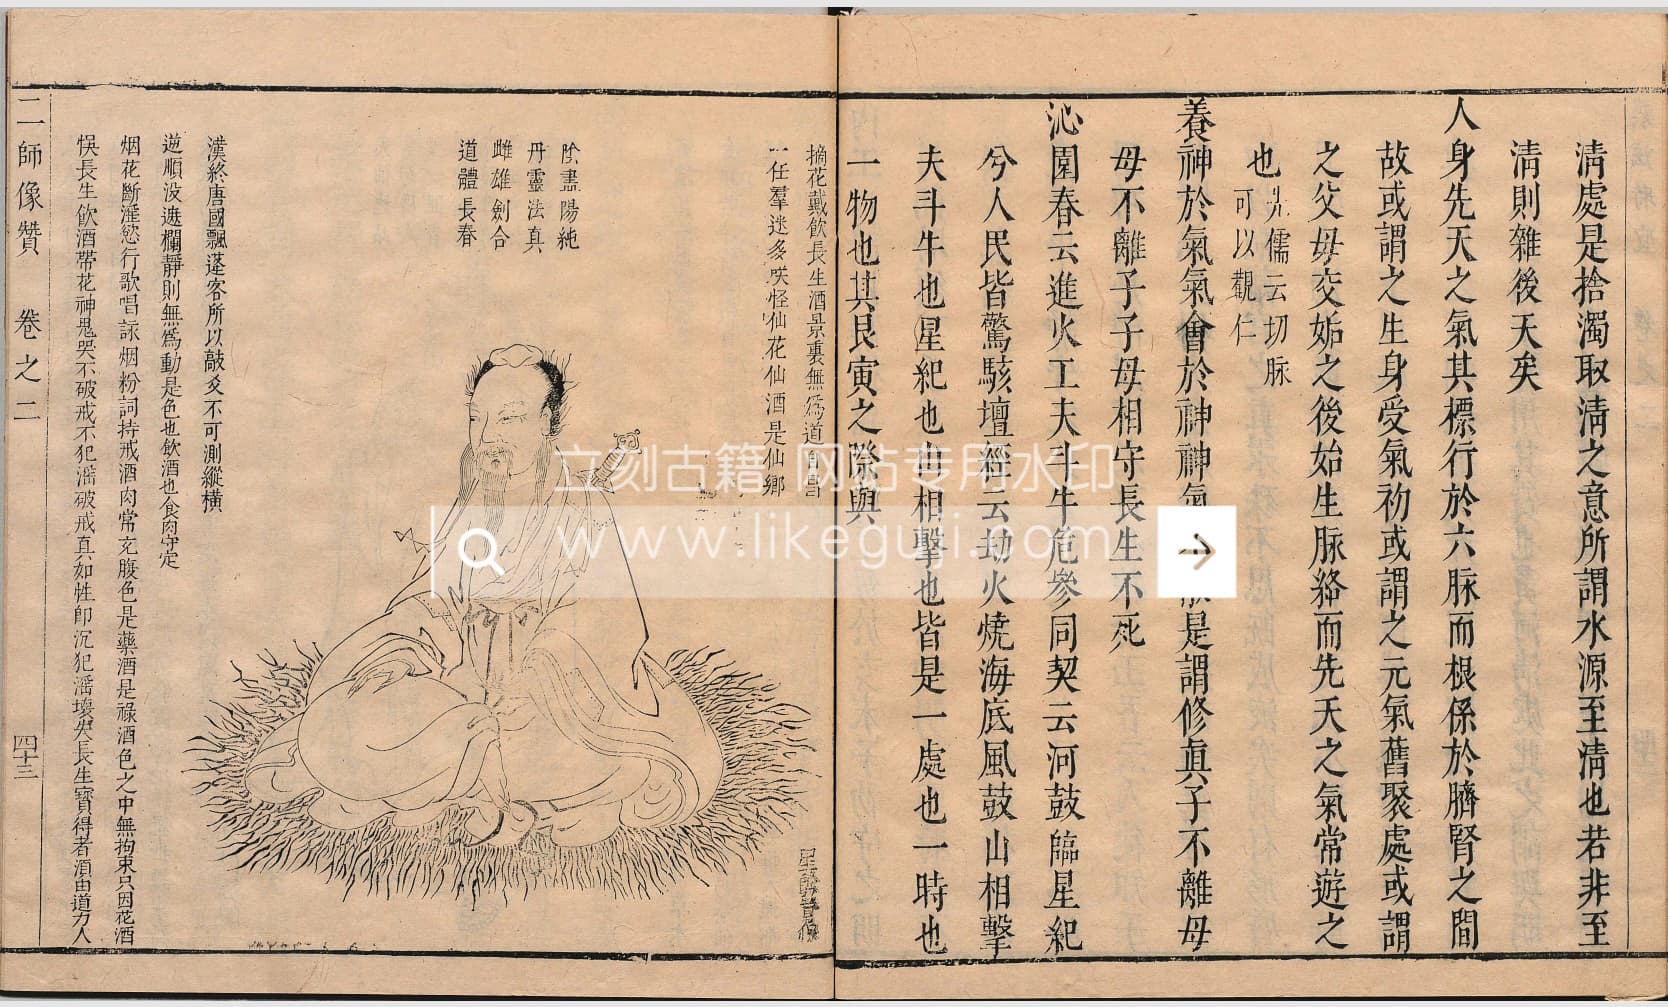 清處是捨濁取清之意所謂水源至清也若非至
清則雜後天矣
人身先天之氣其標行於六脉而根係於臍腎之間
故或謂之生身受氣初或謂之元氣舊聚處或謂
之父母交姤之後始生脉絡而先天之氣常遊之
也
先儒云切脉
可以觀仁
養神於氣氣會於神神氣是謂修真子不離母
母不離子子母相守長生不死
沁園春云進火工夫斗牛危參同契云河鼓臨星紀
兮人民皆驚駭壇經云劫火燒海底風鼓山相擊
夫斗牛也星紀也山相擊也皆是一處也一時也
一物也其艮寅之際與
摘花戴飲長生酒景裏無為道自昌
一任羣迷多笑怪仙花仙酒是仙鄉
陰盡陽純
丹靈法真
雌雄劍合
道體長春
漢終唐國飄蓬客所以敲爻不可測縱橫
逆順没遮欄靜則無為動是色也飲酒也食肉守定
烟花斷淫慾行歌唱詠烟粉詞持戒酒肉常充腹色是藥酒是祿酒色之中無拘束只因花酒
悞長生飲酒帶花神鬼哭不破戒不犯淫破戒真如性即沉犯淫壞失長生寶得者須由道力人
二師像贊 卷之二 四十三
立刻古籍 网站专用水印
www.likeguji.com